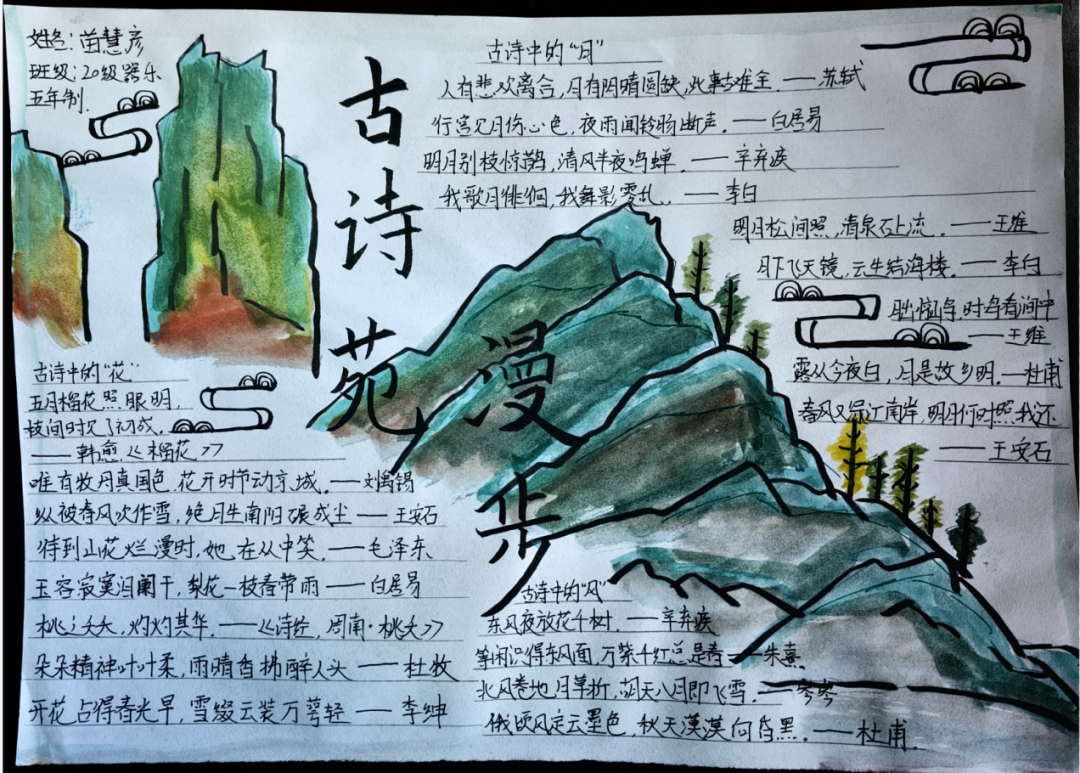 姓名:苗慧彦
班级:20级器乐
五年制.
古诗苑
漫步
古诗中的"月"
人有悲欢离合,月有阴晴圆缺,此事古难全.——苏轼
行宫见月伤心色,夜雨闻铃肠断声.——白居易
明月别枝惊鹊,清风半夜鸣蝉.——辛弃疾
我歌月徘徊,我舞影零乱.——李白
明月松间照,清泉石上流.——王维
月下飞天镜,云生结海楼.——李白
时鸣春涧中
——王维
露从今夜白,月是故乡明.——杜甫
春风又绿江南岸,明月何时照我还
——王安石
古诗中的"花"
五月榴花照眼明,
枝间时见子初成.
——韩愈《榴花》
唯有牡丹真国色,花开时节动京城.——刘禹锡
纵被春风吹作雪,绝胜南陌碾成尘——王安石
待到山花烂漫时,她在丛中笑.——毛泽东
玉容寂寞泪阑干,梨花一枝春带雨——白居易
桃之夭夭,灼灼其华.——《诗经,周南·桃夭》
朵朵精神叶叶柔,雨晴香拂醉人头——杜牧
开花占得春光早,雪缀云装万萼轻——李绅
古诗中的"风"
东风夜放花千树.——辛弃疾
等闲识得东风面,万紫千红总是春——朱熹
北风卷地白草折,胡天八月即飞雪.——岑参
俄顷风定云墨色,秋天漠漠向昏黑.——杜甫